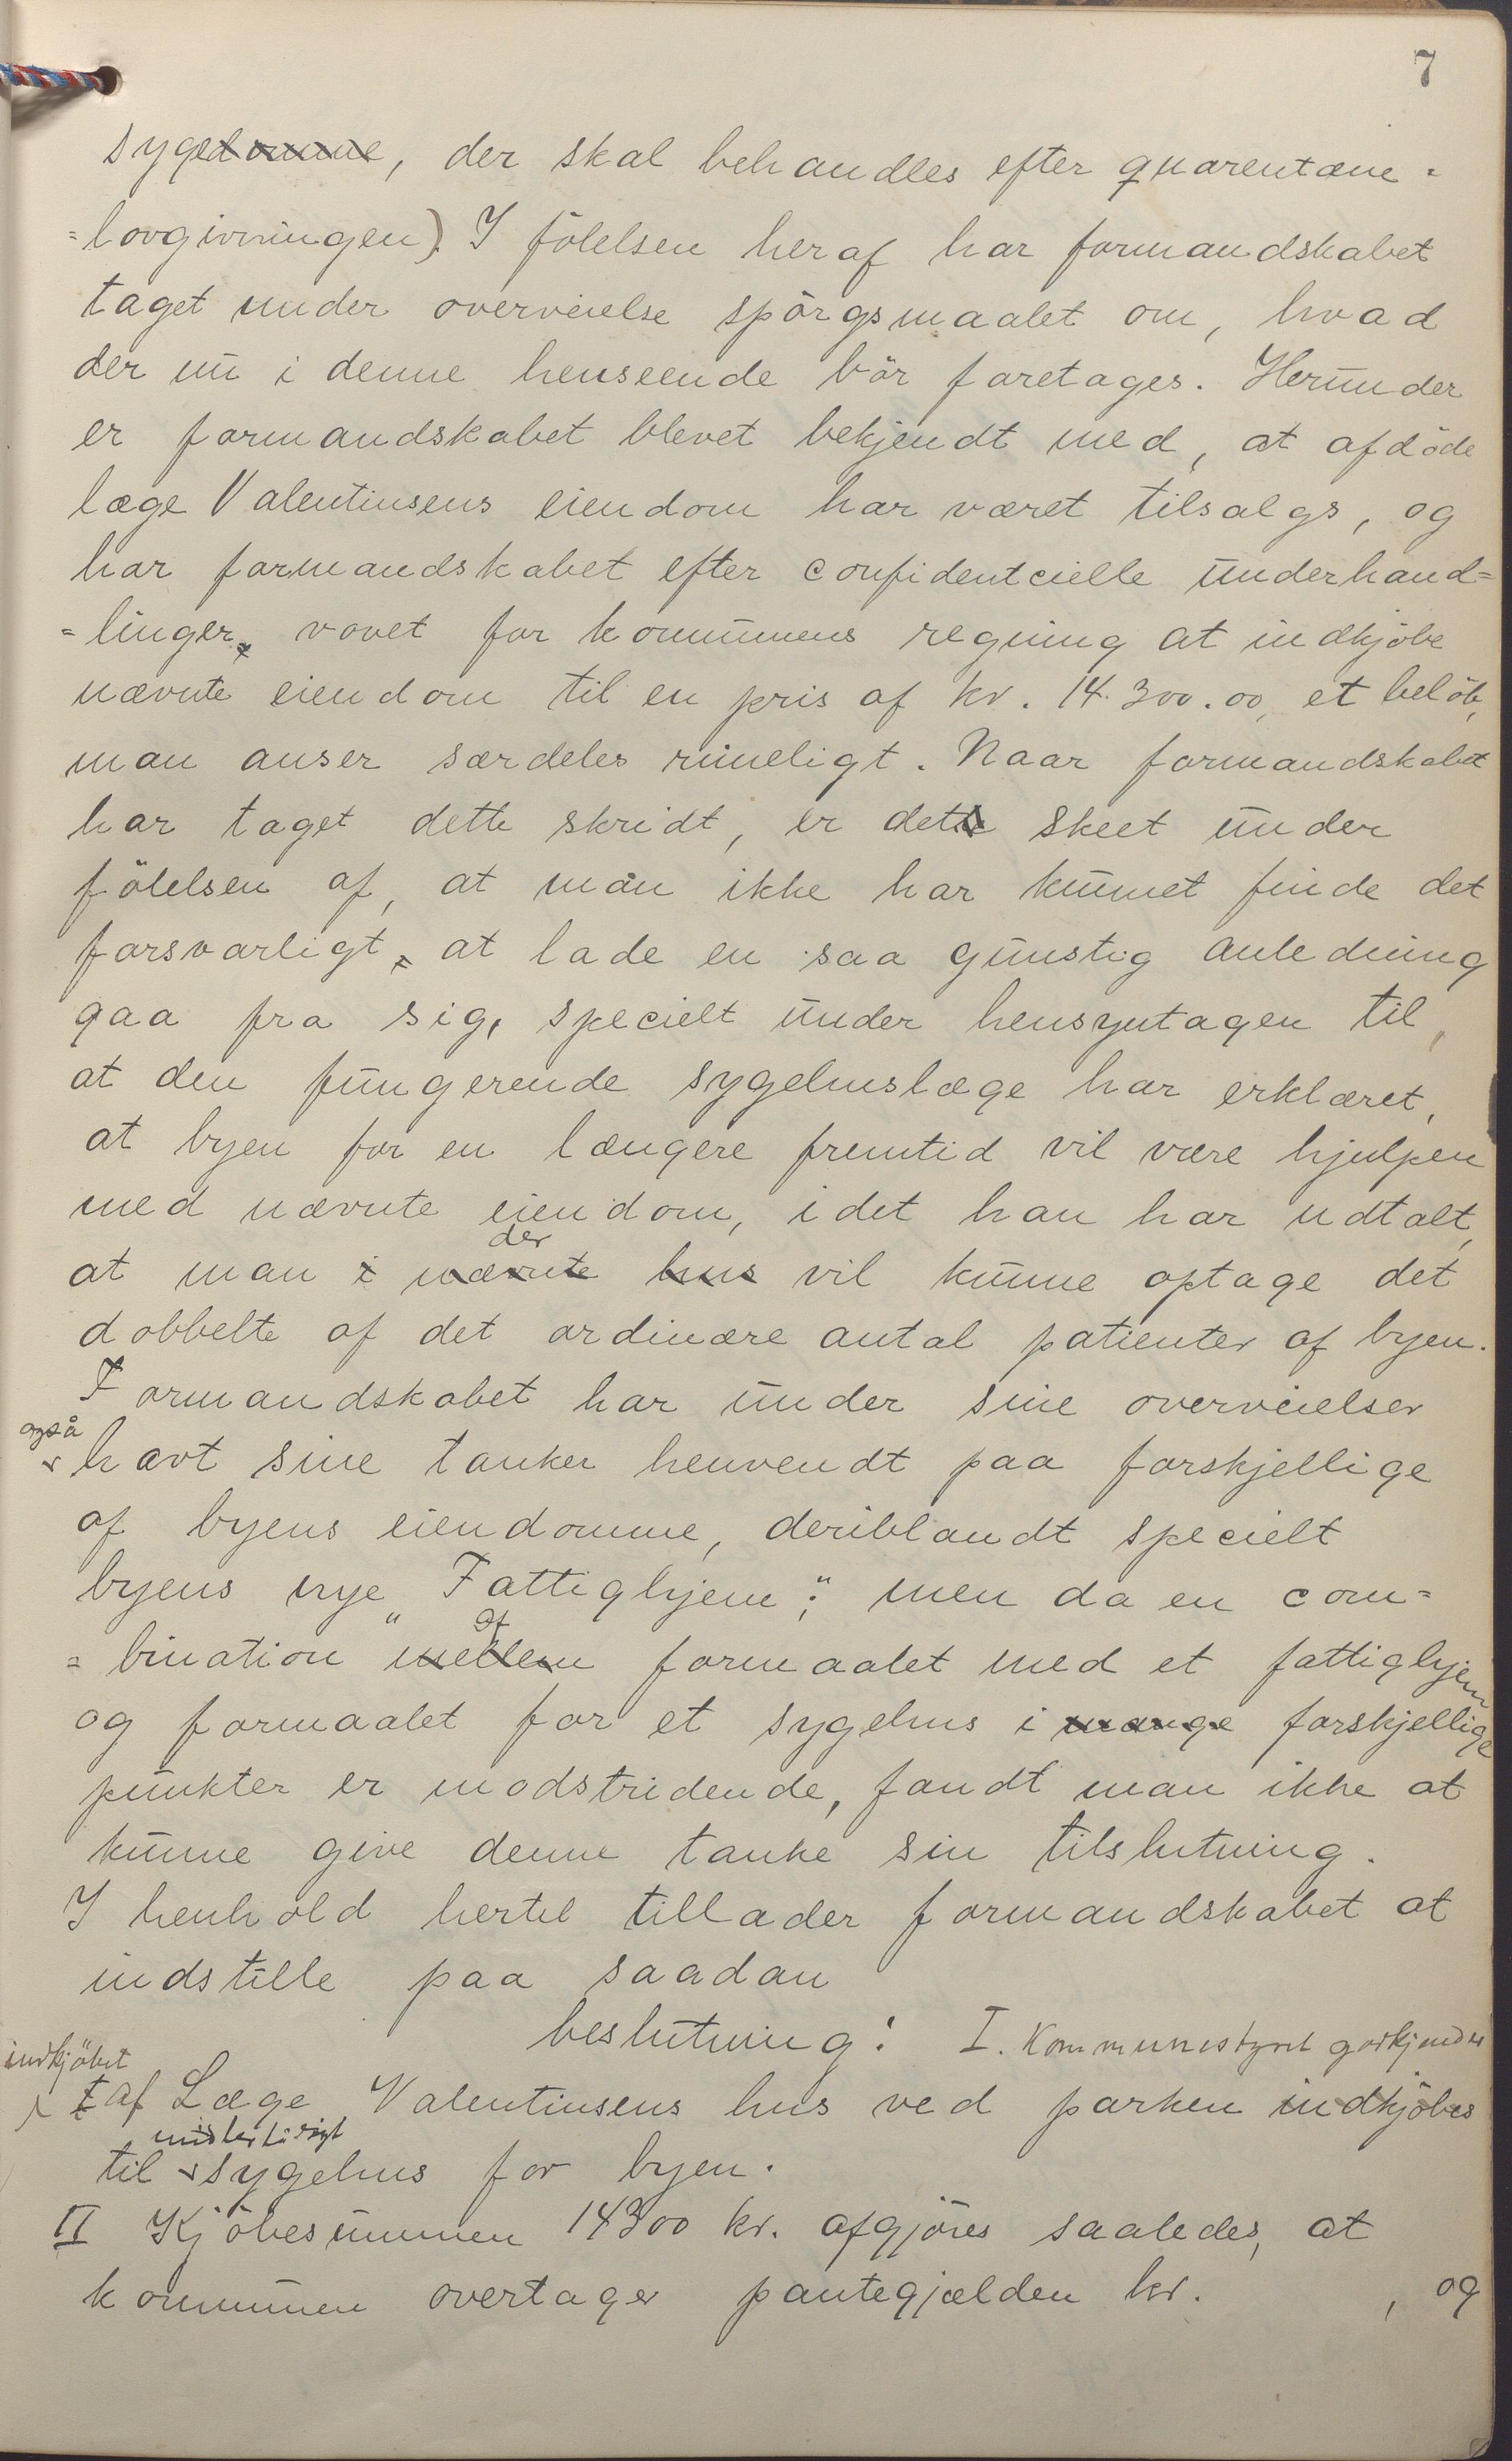 7
syge domme, der skal behandles efter quarentæne=
=lovgivningen). I fölelsen heraf har formandskabet
taget under overveielse spörgsmaalet om, hvad
der nu i denne henseende bör foretages. Herunder
er formandskabet blevet bekjendt med, at afdöde
læge Valentinsens eiendom har været tilsalgs, og
har formandskabet efter confidentcielle underhand=
=linger, vovet for kommunens regning at indkjöbe
nævnte eiendom til en pris af kr. 14.300.00, et belöb,
man anser særdeles rimeligt. Naar formandskabet
har taget dette skridt, er dette skeet under
fölelsen af, at man ikke har kunnet finde det
forsvarligt, at lade en saa gunstig anledning
gaa fra sig, specielt under hensyntagen til,
at den fungerende sygehuslæge har erklæret,
at byen for en længere fremtid vil være hjulpen
med nævnte eiendom, idet han har udtalt,
der
at man i nævnte hus vil kunne optage det
dobbelte af det ordinære antal patienter af byen.
Formandskabet har under sine overveielser
også
havt sine tanker henvendt paa forskjellige
af byens eiendomme, deriblandt specielt
byens nye "Fattighjem"; men da en com=
af
=bination mellem formaalet med et fattighjem
og formaalet for et sygehus i mange forskjellige
punkter er modstridende, fandt man ikke at
kunne give denne tanke sin tilslutning.
I henhold hertil tillader formandskabet at
indstille paa saadan
beslutning: I. Kommunestyret godkjender
indkjöbet
af Læge Valentinsens hus ved parken indkjöbes
midlertidigt
til sygehus for byen.
II Kjöbesummen 14300 kr. afgjöres saaledes, at
kommunen overtager pantegjælden kr. , og